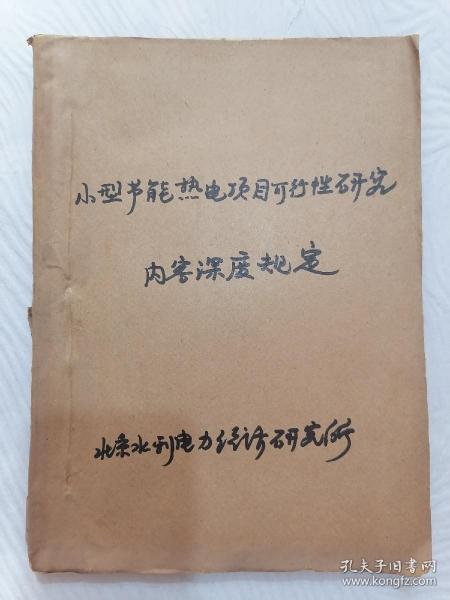 小型节能热电项目可行性研究
内容深度规定
北京水利电力经济研究所
孔夫子旧书网
www.kongfz.com